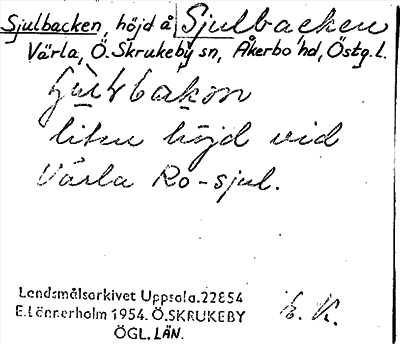 Sjulbacken, höjd å Sjulbacken
Värla, Ö. Skrukeby sn, Åkerbo hd, Östg. l.
liten höjd vid
Värla Ro-sjul.
Landsmålsarkivet Uppsala. 22854
E. Lönnerholm 1954. Ö. SKRUKEBY
ÖGL. LÄN.
E. K.